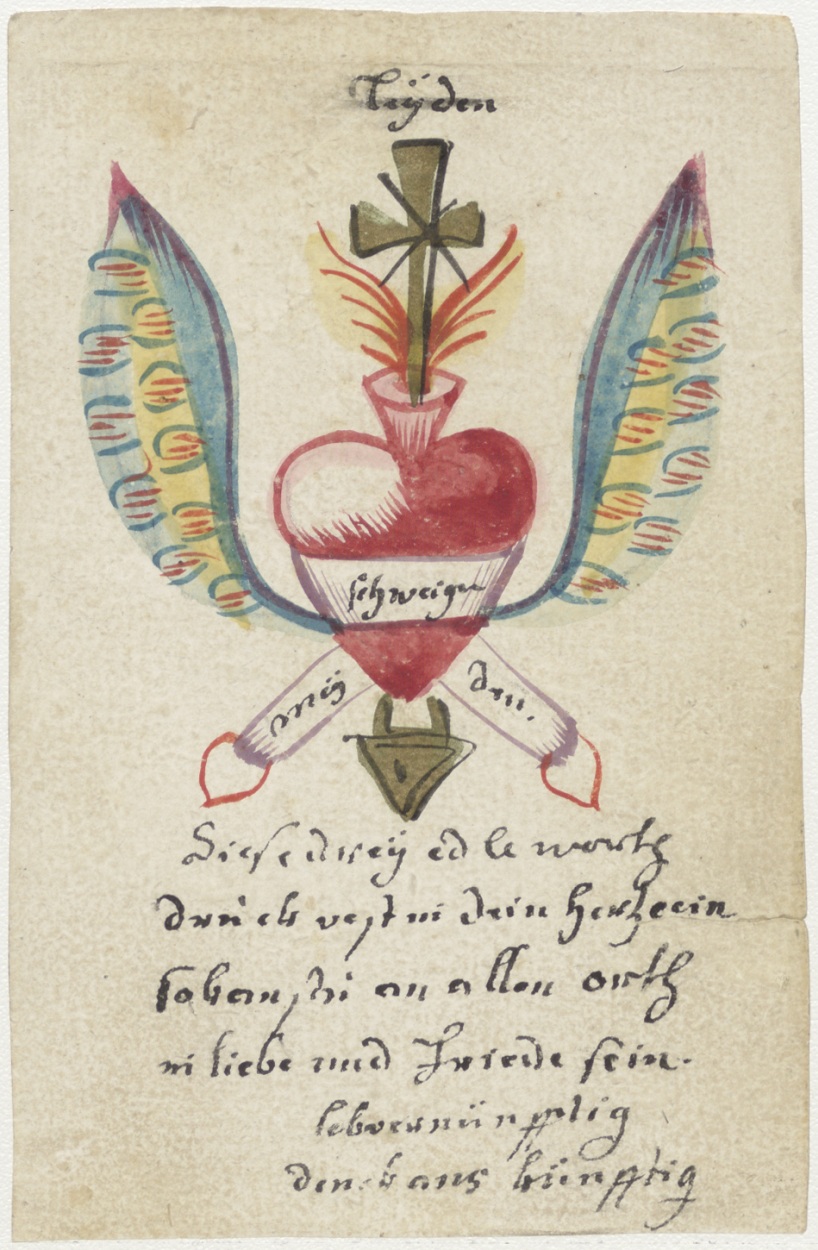 leÿden
schweige
meÿ
den.
Diese dreÿ edle worth
drück vest in dein hertz ein
so kanstu an allen orth
in liebe und Friede sein.
leb vernünfftig
denk aufs künfftig